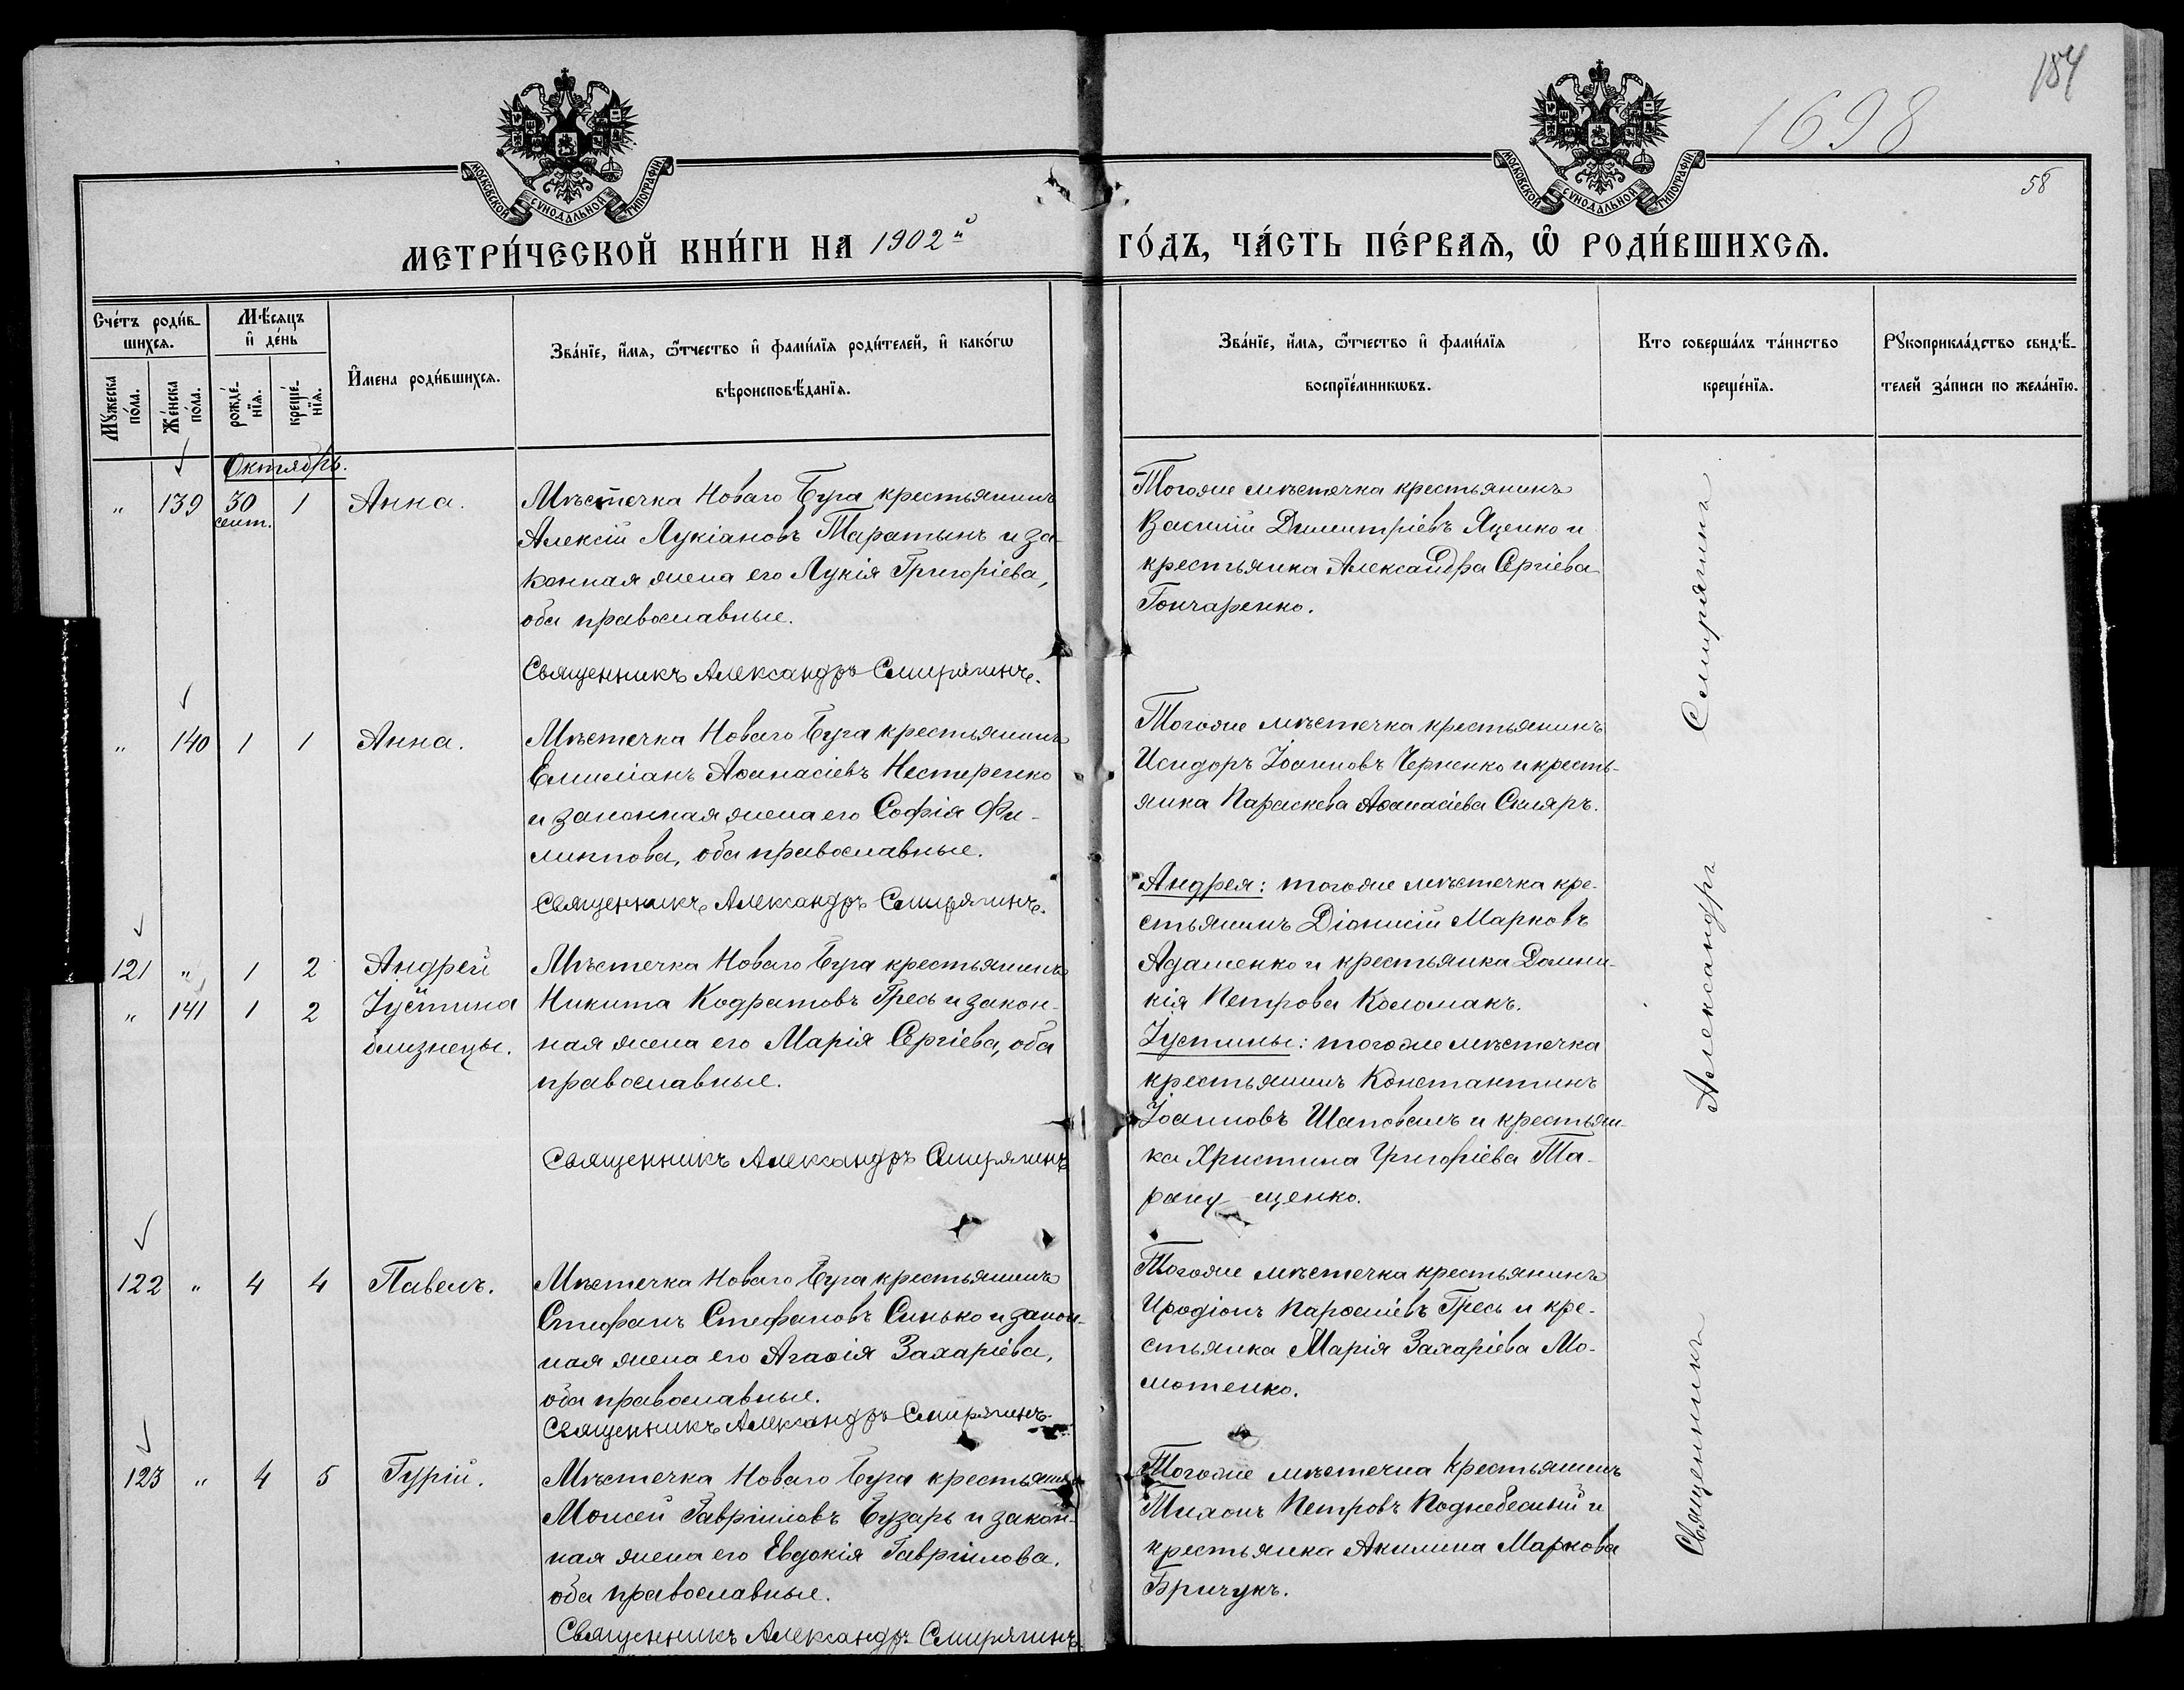 МОСКОВСКОЙ СѴНОДАЛЬНОЙ ТИПОГРАФІИ
МОСКОВСКОЙ СѴНОДАЛЬНОЙ ТИПОГРАФІИ
1698
154
58
МЕТРИ́ЧЕСКОЙ КНИ́ГИ НА 1902й ГО́ДЪ, ЧА́СТЬ ПЕ́РВАѦ, Ѡ҆ РОДИ́ВШИХСѦ.
Сче́тъ роди́в-
шихсѧ.
Мѣ́сѧцъ
и҆ де́нь
Мꙋ́жеска
по́ла.
Же́нска
по́ла.
рожде́-
нїѧ.
креще́-
нїѧ.
И҆мена роди́вшихсѧ.
Зва́нїе, и҆́мѧ, ѻ҆́тчество и҆ фами́лїѧ роди́телей, и҆ како́гѡ
вѣроисповѣ́данїѧ.
Зва́нїе, и҆́мѧ, ѻ҆́тчество и҆ фами́лїѧ
воспрїе́мникѡвъ.
Кто соверша́лъ та́инство
креще́нїѧ.
Рꙋкоприкла́дство свидѣ́-
телей за́писи по жела́нїю.
Октябрь.
" 139 30 сент. 1 Анна.
Мѣстечка Новаго Буга крестьянинъ
Алексій Лукіановъ Таратынъ и за-
конная жена его Лукія Григоріева,
оба православные.
Священникъ Александръ Смирягинъ.
Тогоже мѣстечка крестьянинъ
Василій Димитріевъ Яценко и
крестьянка Александра Сергіева
Гончаренко.
" 140 1 1 Анна.
Мѣстечка Новаго Буга крестьянинъ
Емиліанъ Аѳанасіевъ Нестеренко
и законная жена его Софія Фи-
липпова, оба православные.
Священникъ Александръ Смирягинъ.
Тогоже мѣстечка крестьянинъ
Исидоръ Іоанновъ Черненко и кресть-
янка Параскева Аѳанасіева Скляръ.
121 " 1 2 Андрей
" 141 1 2 Іустина
близнецы.
Мѣстечка Новаго Буга крестьянинъ
Никита Кодратовъ Гресь и закон-
ная жена его Марія Сергіева, оба
православные.
Священникъ Александръ Смирягинъ
Андрея: тогоже мѣстечка кре-
стьянинъ Діонисій Марковъ
Адаменко и крестьянка Домни-
кія Петрова Коломакъ.
Іустины: тогоже мѣстечка
крестьянинъ Константинъ
Іоанновъ Шаповалъ и крестьян-
ка Христина Григоріева Та-
рану-щенко.
122 " 4 4 Павелъ.
Мѣстечка Новаго Буга крестьянинъ
Стефанъ Стефановъ Синько и закон-
ная жена его Агаѳія Захаріева,
оба православные.
Священникъ Александръ Смирягинъ.
Тогоже мѣстечка крестьянинъ
Иродіонъ Парѳеніевъ Гресь и кре-
стьянка Марія Захаріева Мо-
мотенко.
123 " 4 5 Гурій.
Мѣстечка Новаго Буга крестьянинъ
Моисей Гавріиловъ Бузаръ и закон-
ная жена его Евдокія Гавріилова,
оба православные.
Священникъ Александръ Смирягинъ
Тогоже мѣстечка крестьянинъ
Тихонъ Петровъ Поднебесный и
крестьянка Акилина Маркова
Бричукъ.
Священникъ Александръ Смирягинъ